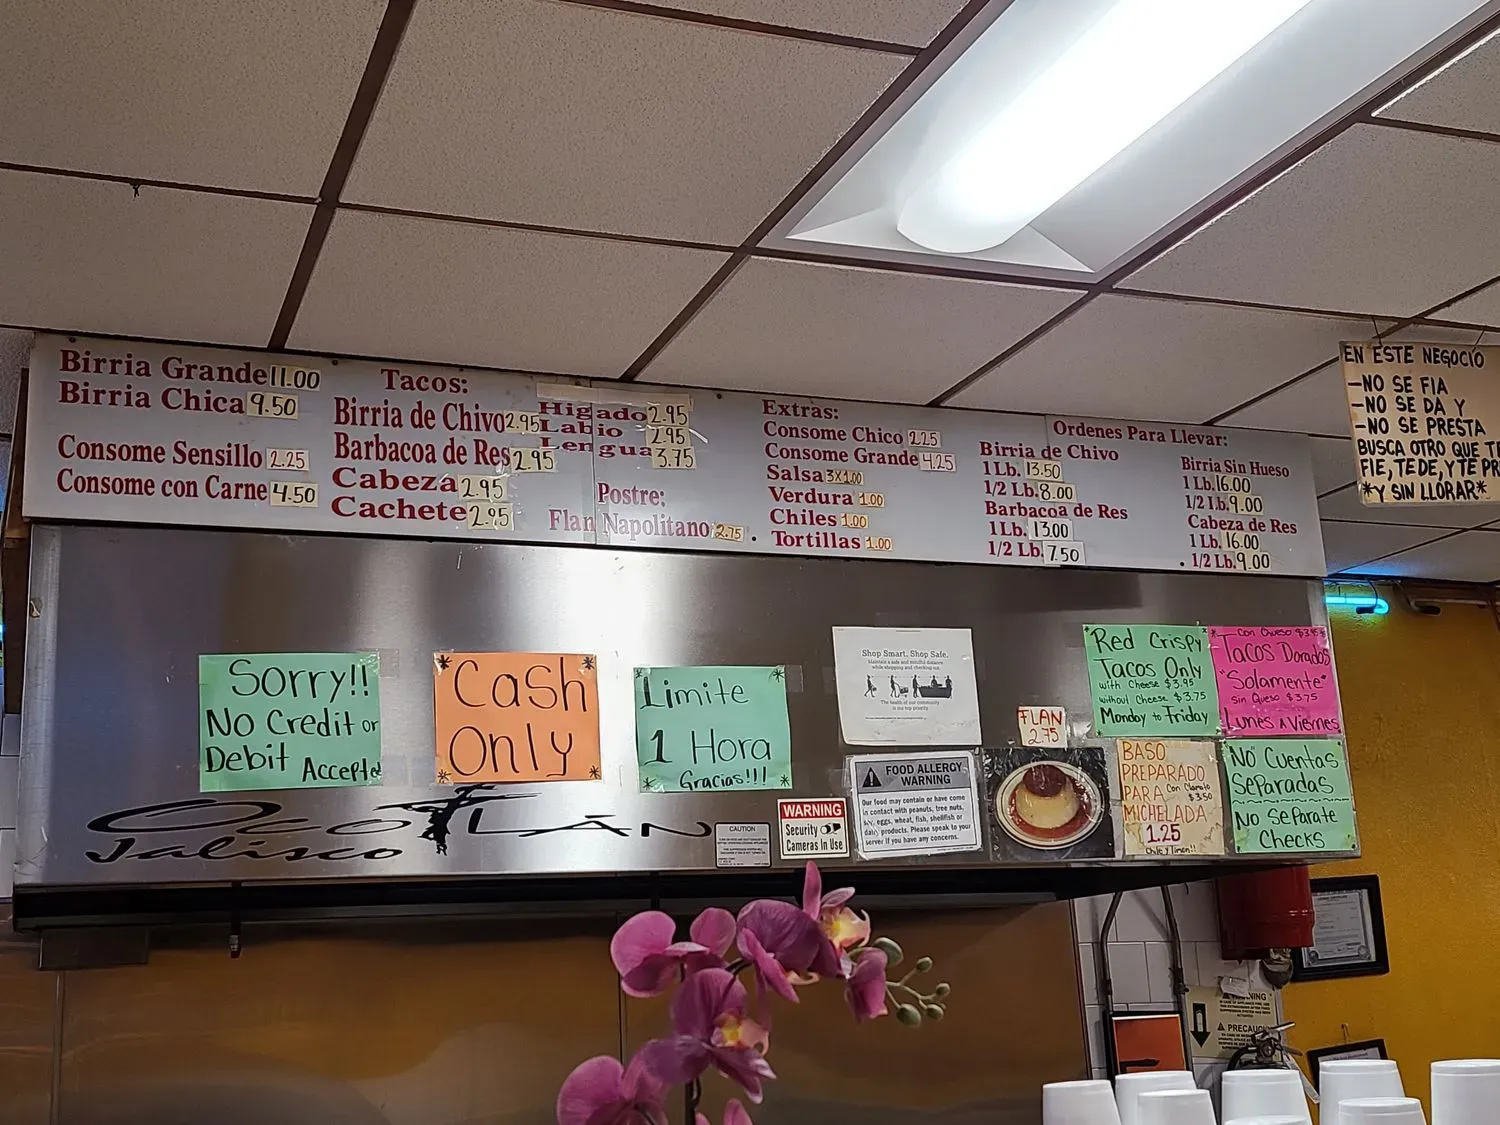 Birria Grande 11.00
Birria Chica 9.50
Consome Sensillo 2.25
Consome con Carne 4.50
Tacos:
Birria de Chivo 2.95
Barbacoa de Res 2.95
Cabeza 2.95
Cachete 2.95
Higado 2.95
Labio 2.95
Lengua 3.75
Postre:
Flan Napolitano 2.75
Extras:
Consome Chico 2.25
Consome Grande 4.25
Salsa 3x1.00
Verdura 1.00
Chiles 1.00
Tortillas 1.00
Ordenes Para Llevar:
Birria de Chivo
1 Lb. 13.50
1/2 Lb. 8.00
Barbacoa de Res
1 Lb. 13.00
1/2 Lb. 7.50
Birria Sin Hueso
1 Lb. 16.00
1/2 Lb. 9.00
Cabeza de Res
1 Lb. 16.00
1/2 Lb. 9.00
EN ESTE NEGOCIO
-NO SE FIA
-NO SE DA Y
-NO SE PRESTA
BUSCA OTRO QUE TE
FIE, TE DE, Y TE PR
*Y SIN LLORAR*
Sorry!!
No Credit or
Debit Accepte
*Cash*
Only*
Limite
1 Hora
*Gracias!!!!*
Shop Smart. Shop Safe.
Maintain a safe and mindful distance
while shopping and checking out.
The health of our community
is our top priority.
FLAN
2.75
*Red Crispy*
Tacos Only
with Cheese $3.95
without Cheese $3.75
Monday to Friday
*Con Queso $3.95*
Tacos Dorados
"Solamente"
Sin Queso $3.75
Lunes a Viernes
OcoTLÁN
Jalisco
CAUTION
WARNING
Security
Cameras In Use
FOOD ALLERGY
WARNING
Our food may contain or have come
in contact with peanuts, tree nuts,
soy, eggs, wheat, fish, shellfish or
dairy products. Please speak to your
server if you have any concerns.
BASO
PREPARADO
PARA Con Clamato $3.50
MICHELADA
1.25
Chile y Limon!!
No Cuentas
Separadas
No Separate
Checks
WARNING
PRECAUC